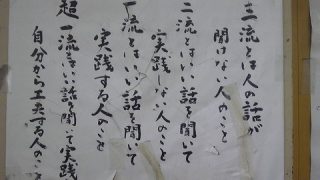 三流とは人の話が
聞けない人のこと
二流とはいい話を聞いて
実践しない人のこと
一流とはいい話を聞いて
実践する人のこと
超一流とはいい話を聞いて実践
自分から工夫する人のこと